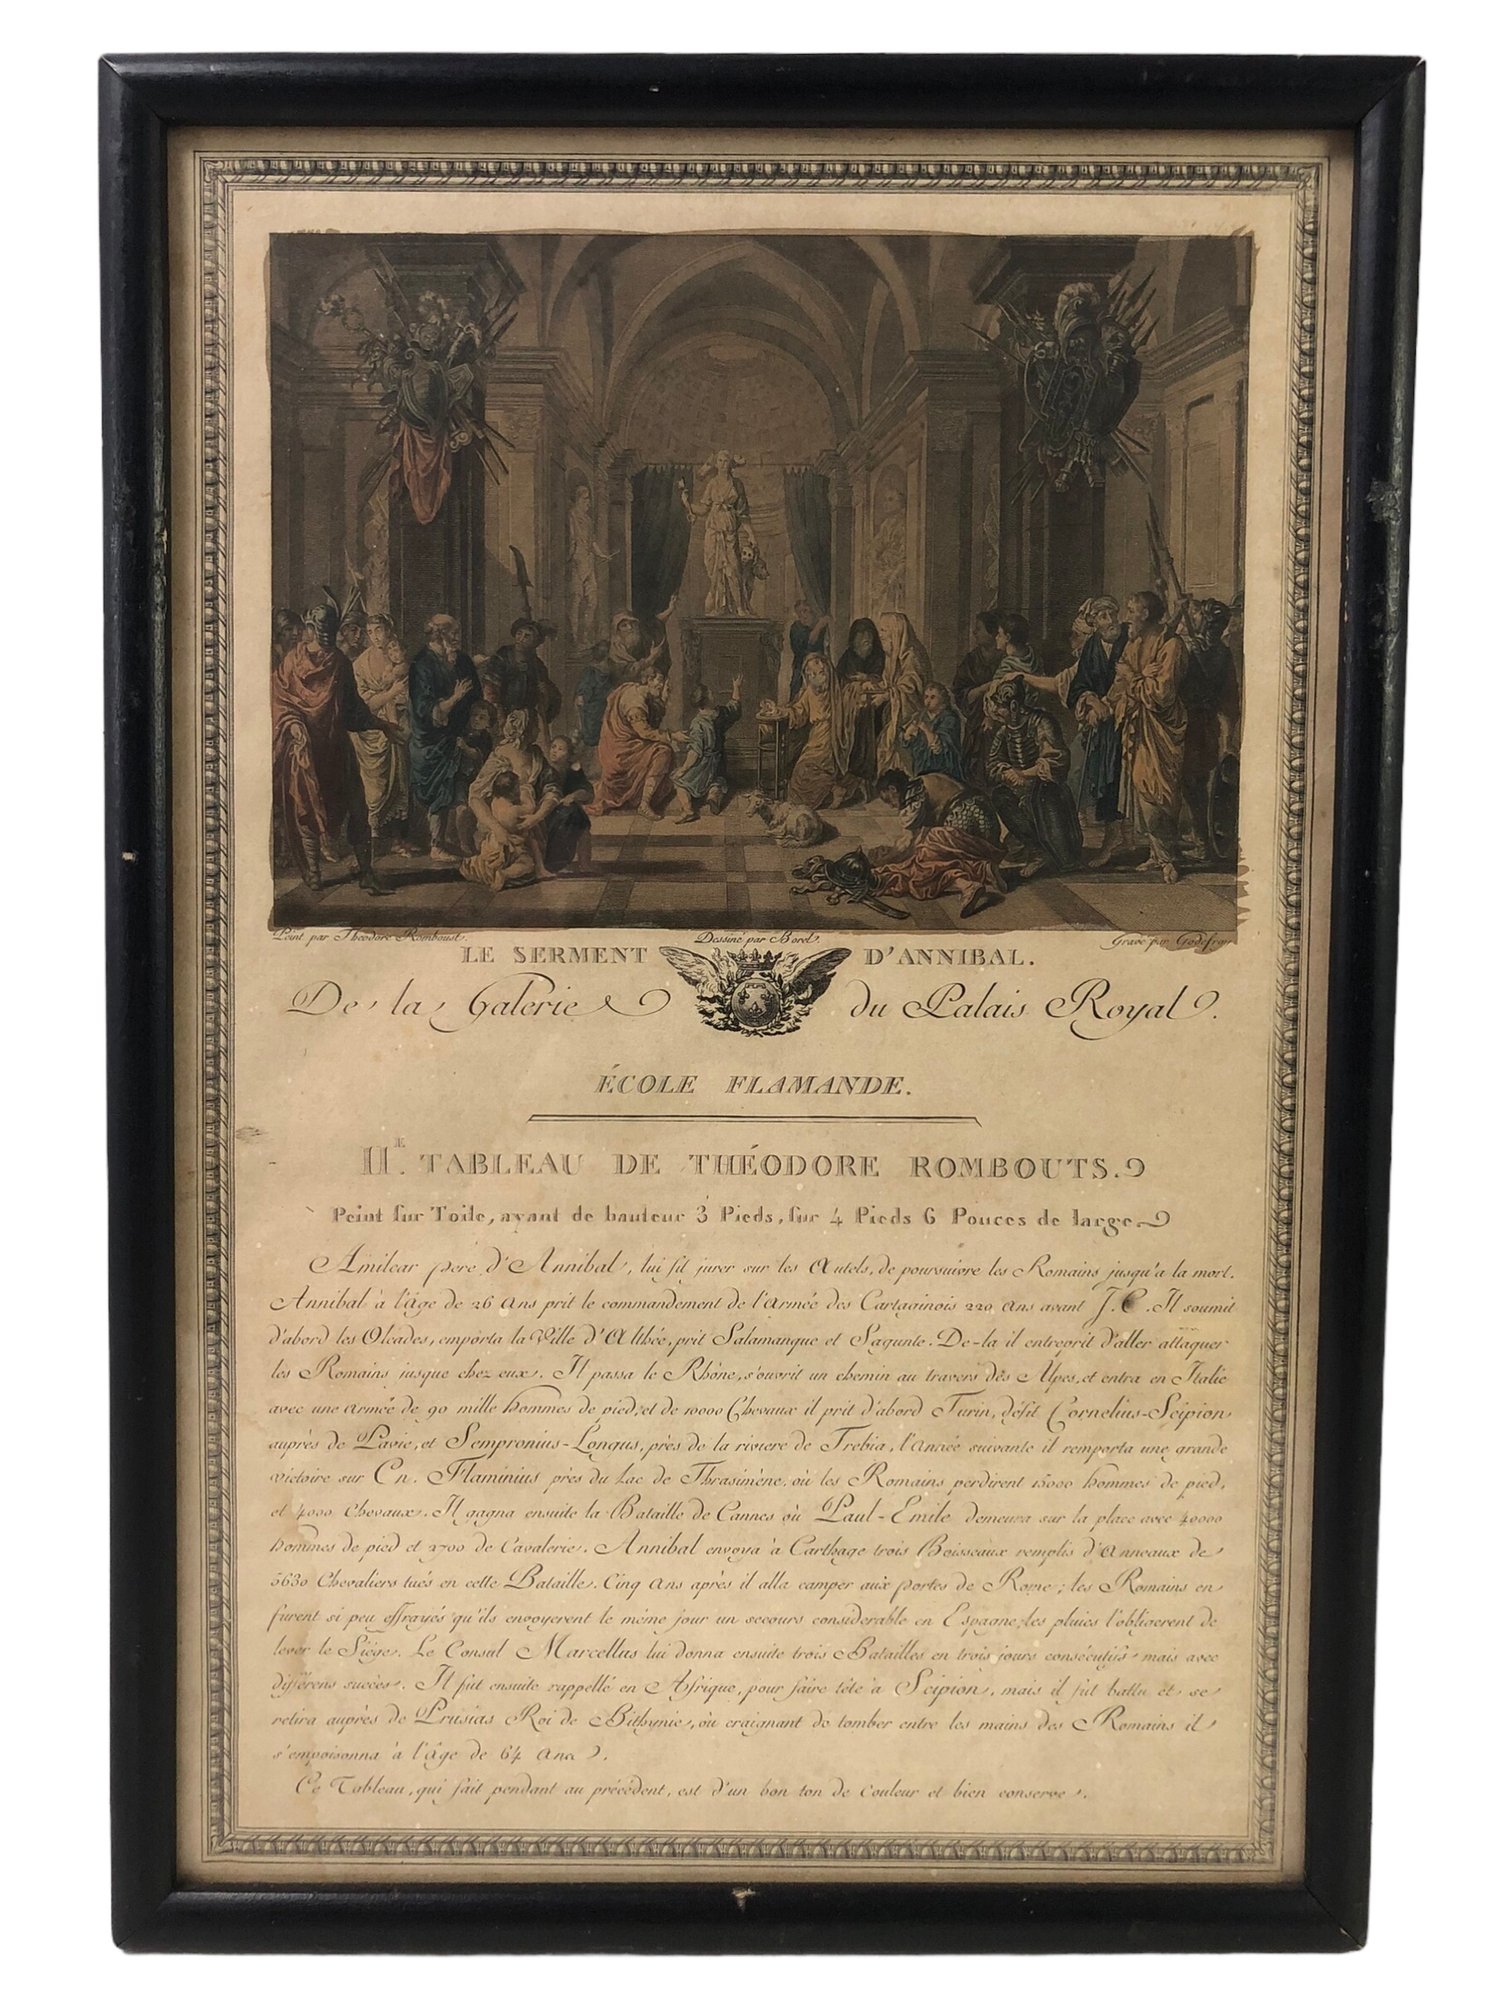 Peint par Théodore Romboust.
Dessiné par Borel.
Gravé par Godefroy
LE SERMENT D'ANNIBAL.
De la Galerie du Palais Royal.
ÉCOLE FLAMANDE.
II.E TABLEAU DE THÉODORE ROMBOUTS.
Peint sur Toile, ayant de hauteur 3 Pieds, sur 4 Pieds 6 Pouces de large.
Amilcar père d'Annibal, lui fit jurer sur les Autels, de poursuivre les Romains jusqu'a la mort.
Annibal à l'âge de 26 Ans prit le commandement de l'Armée des Cartaginois 220 Ans avant J.C. Il soumit
d'abord les Olcades, emporta la Ville d'Althée, prit Salamanque et Sagunte. De-la il entreprit d'aller attaquer
les Romains jusque chez eux. Il passa le Rhône, s'ouvrit un chemin au travers des Alpes, et entra en Italie
avec une Armée de 90 mille hommes de pied, et de 10000 Chevaux il prit d'abord Turin, défit Cornelius-Scipion
auprès de Pavie, et Sempronius-Longus, près de la riviere de Trebia, l'Année suivante il remporta une grande
victoire sur Cn. Flaminius près du Lac de Thrasimène, où les Romains perdirent 15000 hommes de pied,
et 4000 Chevaux. Il gagna ensuite la Bataille de Cannes où Paul-Emile demeura sur la place avec 40000
hommes de pied et 2700 de Cavalerie. Annibal envoya à Carthage trois Boisseaux remplis d'Anneaux de
5630 Chevaliers tués en cette Bataille. Cinq Ans après il alla camper aux portes de Rome; les Romains en
furent si peu effrayés qu'ils envoyerent le même jour un secours considerable en Espagne, les pluies l'obligerent de
lever le Siége. Le Consul Marcellus lui donna ensuite trois Batailles en trois jours consécutifs mais avec
différens succès. Il fut ensuite rappellé en Afrique, pour faire tête à Scipion, mais il fut battu et se
retira auprès de Prusias Roi de Bithynie, où craignant de tomber entre les mains des Romains il
s'empoisonna à l'âge de 64 Ans.
Ce Tableau, qui fait pendant au précédent, est d'un bon ton de Couleur et bien conservé.